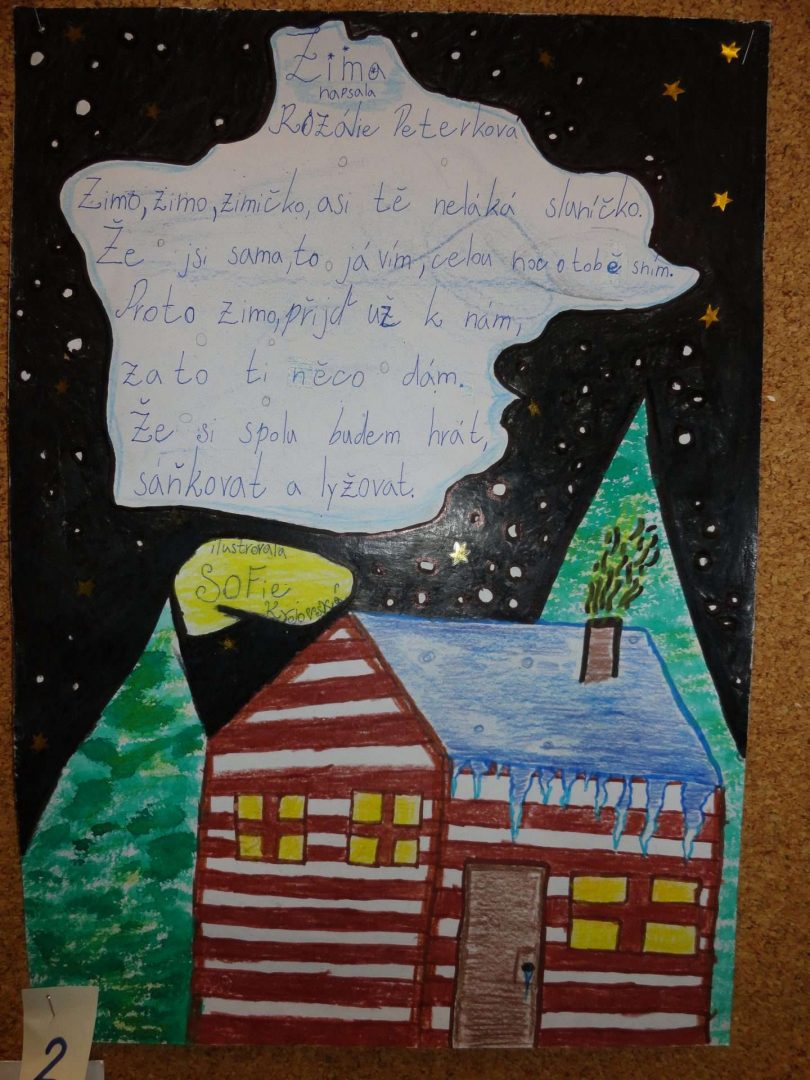 Zima
napsala
Rozálie Peterková
Zimo, zimo, zimičko, asi tě neláká sluníčko.
Že jsi sama, to já vím, celou noc o tobě sním.
Proto zimo, přijď už k nám,
za to ti něco dám.
Že si spolu budem hrát,
sáňkovat a lyžovat.
ilustrovala
SOFie
2